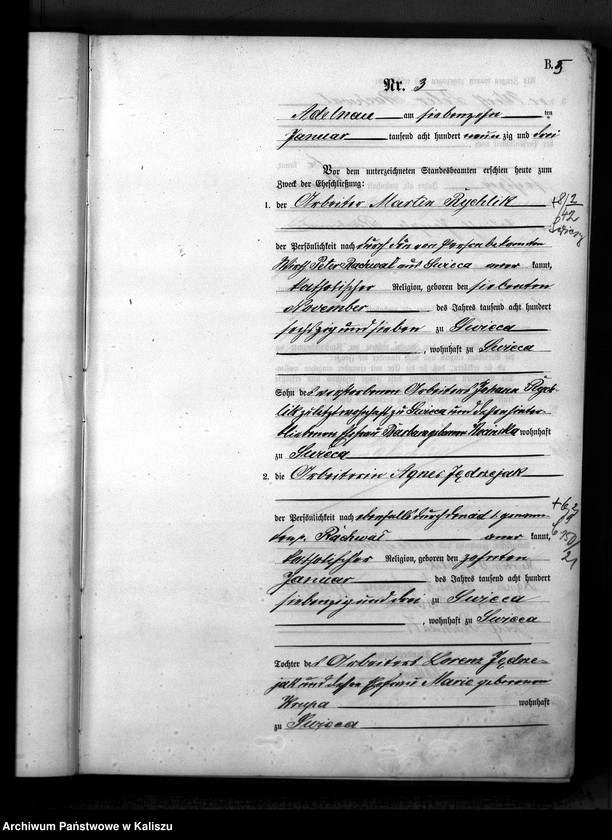 B. 5
Nr. 3
Adelnau am siebenzehnten
Januar tausend acht hundert neunzig und drei
Vor dem unterzeichneten Standesbeamten erschien heute zum
Zweck der Eheschließung:
1. der Arbeiter Martin Rychlik
+ 8/2
42
der Persönlichkeit nach durch den von Person bekannten
Wirth Peter Rachwał aus Swieca aner kannt,
katholischer Religion, geboren den siebenten
November des Jahres tausend acht hundert
sechzig und sieben zu Swieca
, wohnhaft zu Swieca
Sohn des verstorbenen Arbeiters Johann Rych-
lik zuletzt wohnhaft zu Swieca und dessen hinter-
bliebenen Ehefrau Barbara geborenen wohnhaft
zu Swieca
2. die Arbeiterin Agnes Jędrzejak
der Persönlichkeit nach ebenfalls durch den ad 1. genann-
ten p. Rachwał aner kannt,
katholischer Religion, geboren den zehnten
Januar des Jahres tausend acht hundert
siebenzig und drei zu Swieca
, wohnhaft zu Swieca
Tochter des Arbeiters Lorenz Jędrze-
jak und dessen Ehefrau Marie geborenen
Krupa wohnhaft
zu Swieca
Archiwum Państwowe w Kaliszu